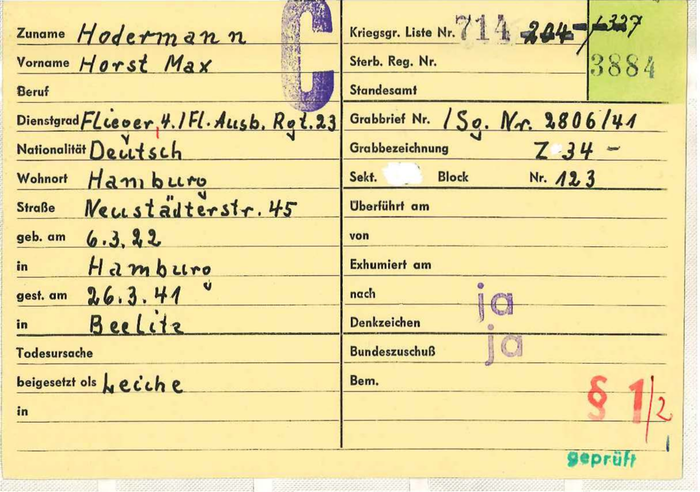 C
Zuname Hodermann
Vorname Horst Max
Beruf
Dienstgrad Flieger, 4./Fl. Ausb. Rgt. 23
Nationalität Deutsch
Wohnort Hamburg
Straße Neustädterstr. 45
geb. am 6.3.22
in Hamburg
gest. am 26.3.41
in Beelitz
Todesursache
beigesetzt als Leiche
in
Kriegsgr. Liste Nr. 714 204 1327
Sterb. Reg. Nr. 3884
Standesamt
Grabbrief Nr. /Sg. Nr. 2806/41
Grabbezeichnung Z 34 -
Sekt. Block Nr. 123
Überführt am
von
Exhumiert am
nach
Denkzeichen ja
Bundeszuschuß ja
Bem.
§ 1/2
geprüft